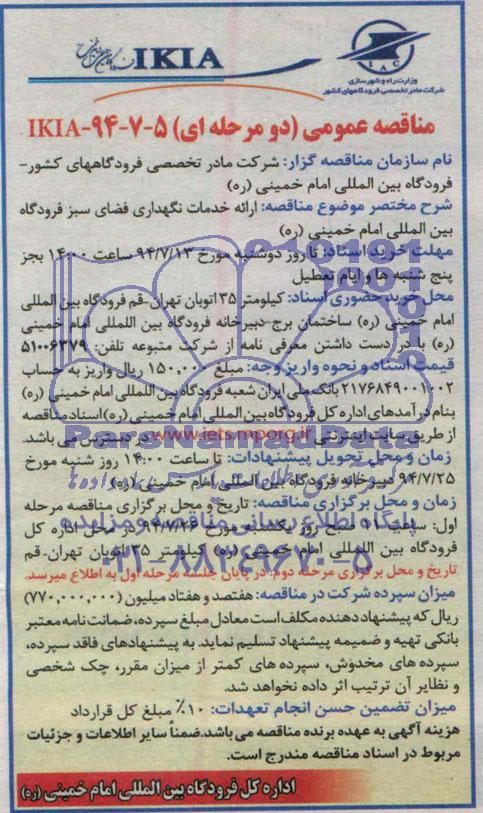 IKIA
IAC
وزارت راه و شهرسازی
شرکت مادر تخصصی فرودگاههای کشور
مناقصه عمومی (دو مرحله ای) IKIA-۹۴-۷-۵
نام سازمان مناقصه گزار: شرکت مادر تخصصی فرودگاههای کشور-
فرودگاه بین المللی امام خمینی (ره)
شرح مختصر موضوع مناقصه: ارائه خدمات نگهداری فضای سبز فرودگاه
بین المللی امام خمینی (ره)
مهلت خرید اسناد: تا روز دوشنبه مورخ ۹۴/۷/۱۳ ساعت ۱۴:۰۰ بجز
پنج شنبه ها و ایام تعطیل
محل خرید حضوری اسناد: کیلومتر ۳۵ اتوبان تهران-قم فرودگاه بین المللی
امام خمینی (ره) ساختمان برج-دبیرخانه فرودگاه بین اللمللی امام خمینی
(ره) با در دست داشتن معرفی نامه از شرکت متبوعه تلفن: ۵۱۰۰۶۳۷۹
قیمت اسناد و نحوه واریز وجه: مبلغ ۱۵۰,۰۰۰ ریال واریز به حساب
۲۱۷۶۸۴۹۰۰۱۰۰۲ بانک ملی ایران شعبه فرودگاه بین المللی امام خمینی (ره)
بنام درآمدهای اداره کل فرودگاه بین المللی امام خمینی (ره) اسناد مناقصه
از طریق سایت اینترنتی www.iets.mporg.ir در دسترس می باشد.
زمان و محل تحویل پیشنهادات: تا ساعت ۱۴:۰۰ روز شنبه مورخ
۹۴/۷/۲۵ دبیرخانه فرودگاه بین المللی امام خمینی (ره)
زمان و محل برگزاری مناقصه: تاریخ و محل برگزاری مناقصه مرحله
اول: ساعت صبح روز یکشنبه مورخ ۹۴/۷/۲۶ در محل اداره کل
فرودگاه بین المللی امام خمینی (ره) کیلومتر ۳۵ اتوبان تهران-قم
تاریخ و محل برگزاری مرحله دوم: در پایان جلسه مرحله اول به اطلاع میرسد.
میزان سپرده شرکت در مناقصه: هفتصد و هفتاد میلیون (۷۷۰,۰۰۰,۰۰۰)
ریال که پیشنهاد دهنده مکلف است معادل مبلغ سپرده، ضمانت نامه معتبر
بانکی تهیه و ضمیمه پیشنهاد تسلیم نماید. به پیشنهادهای فاقد سپرده،
سپرده های مخدوش، سپرده های کمتر از میزان مقرر، چک شخصی
و نظایر آن ترتیب اثر داده نخواهد شد.
میزان تضمین حسن انجام تعهدات: ۱۰٪ مبلغ کل قرارداد
هزینه آگهی به عهده برنده مناقصه می باشد. ضمناً سایر اطلاعات و جزئیات
مربوط در اسناد مناقصه مندرج است.
اداره کل فرودگاه بین المللی امام خمینی (ره)
پایگاه اطلاع رسانی مناقصه و مزایده
۰۲۱-۸۸۳۴۹۶۷۰-۵